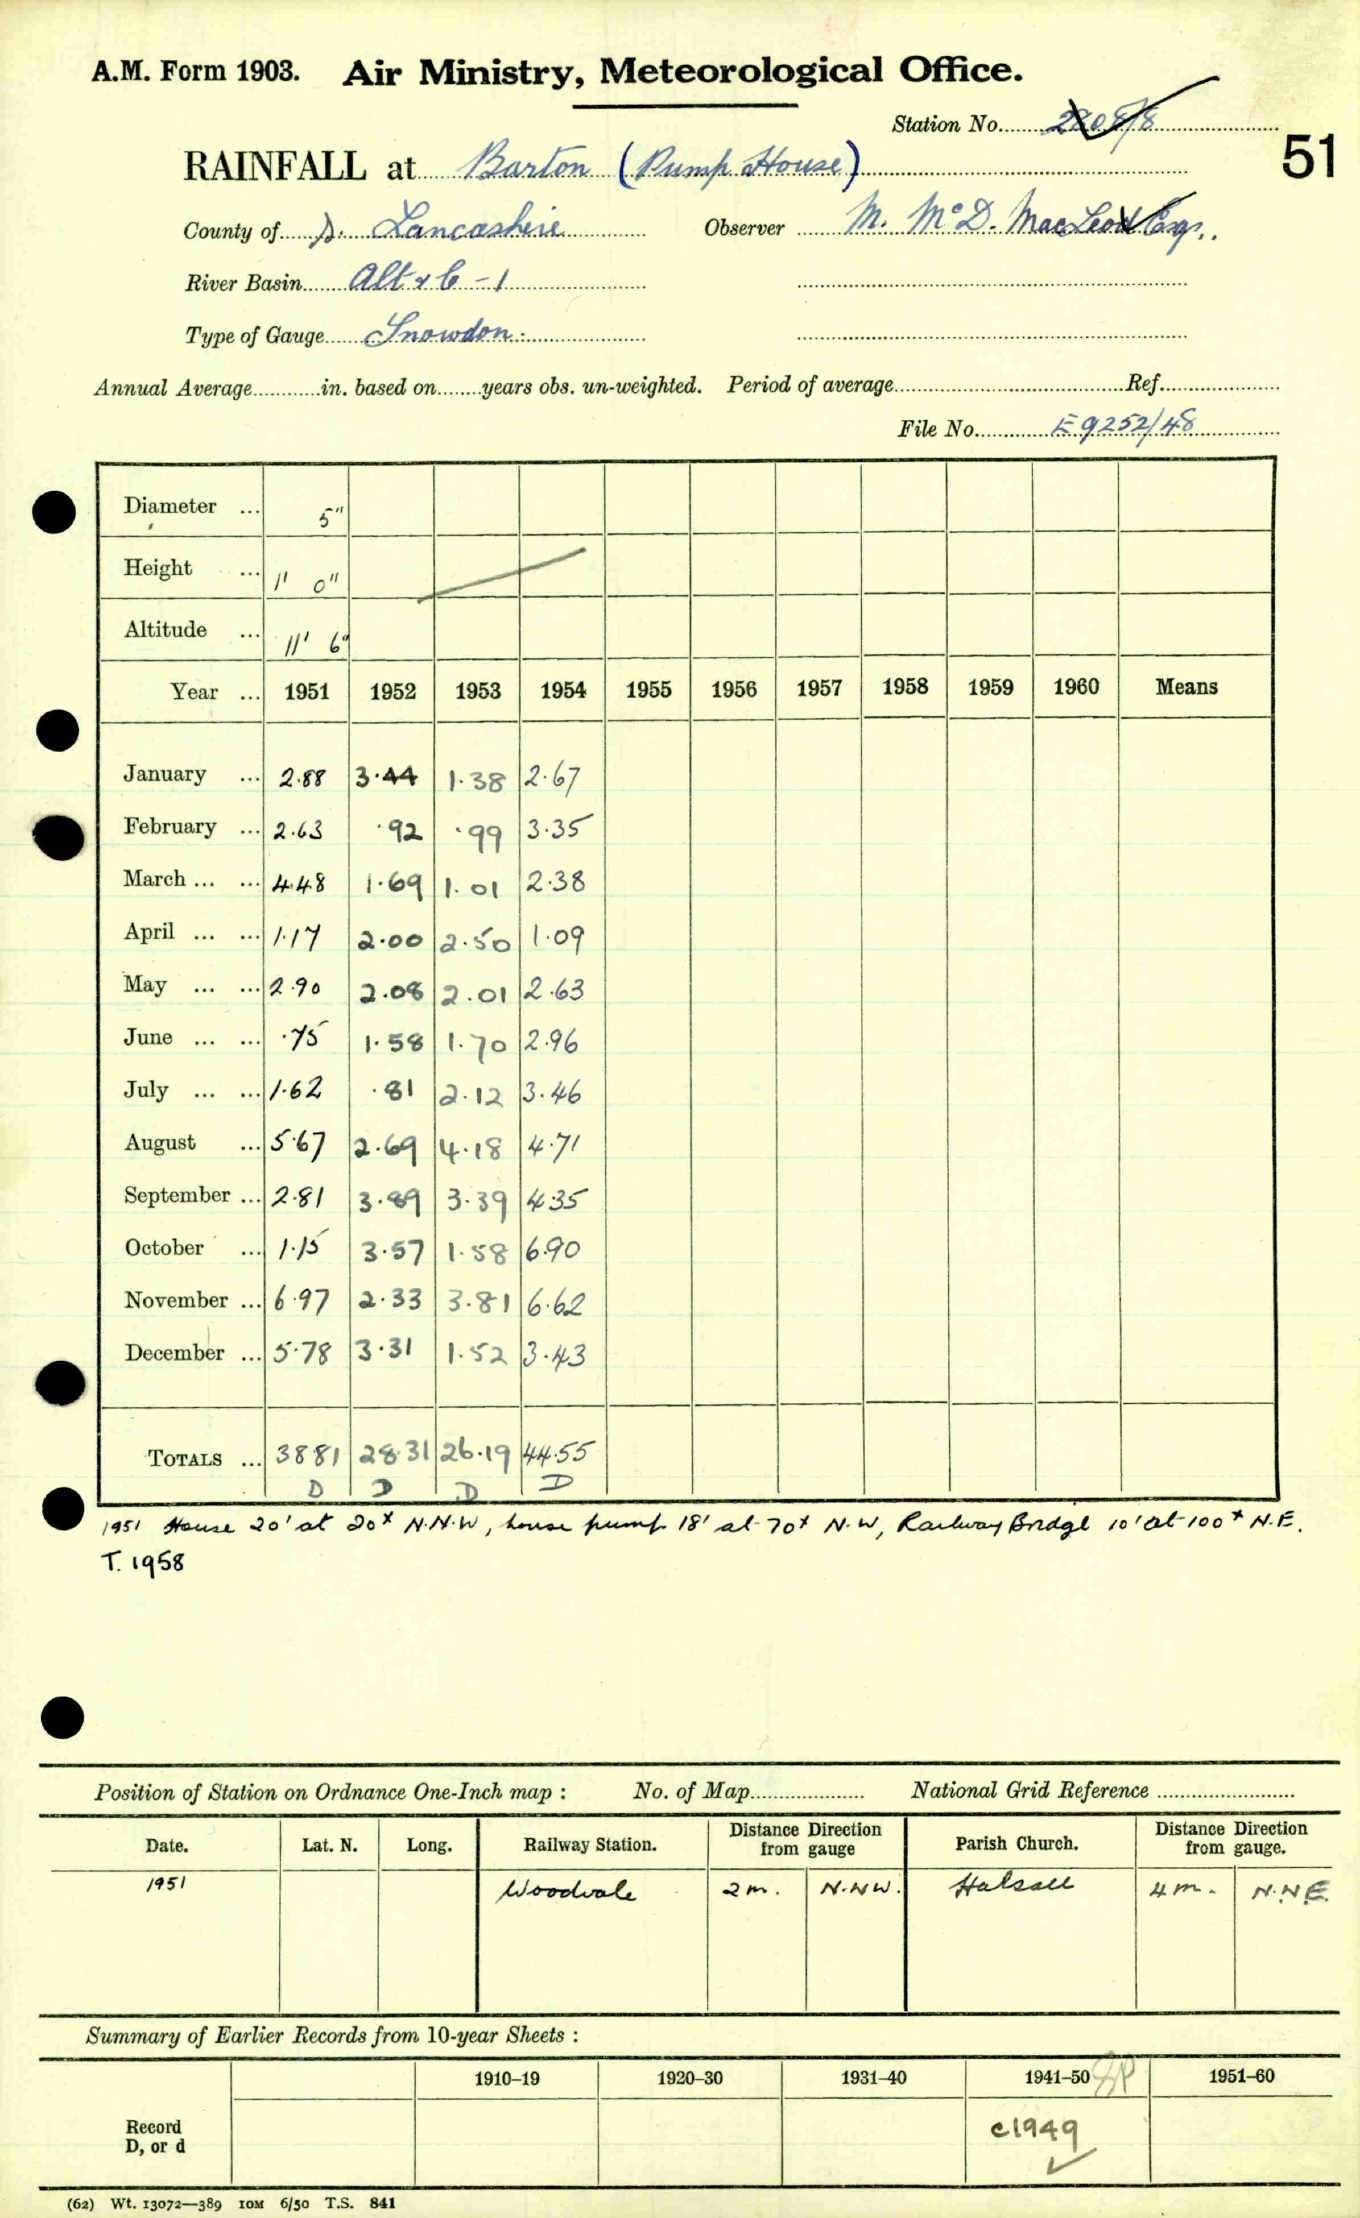 A.M. Form 1903. Air Ministry, Meteorological Office.
Station No. 2808/8
51
RAINFALL at Barton (Pump House)
County of S. Lancashire Observer M. McD. MacLeod Esq.
River Basin Alt & C - 1
Type of Gauge Snowdon
Annual Average in. based on years obs. un-weighted. Period of average Ref.
File No. E9252/48
Diameter ... 5"
Height ... 1' 0"
Altitude ... 11' 6"
Year ... 1951 1952 1953 1954 1955 1956 1957 1958 1959 1960 Means
January ... 2.88 3.44 1.38 2.67
February ... 2.63 .92 .99 3.35
March ... ... 4.48 1.69 1.01 2.38
April ... ... 1.17 2.00 2.50 1.09
May ... ... 2.90 2.08 2.01 2.63
June ... ... .75 1.58 1.70 2.96
July ... ... 1.62 .81 2.12 3.46
August ... 5.67 2.69 4.18 4.71
September ... 2.81 3.89 3.39 4.35
October ... 1.15 3.57 1.58 6.90
November ... 6.97 2.33 3.81 6.62
December ... 5.78 3.31 1.52 3.43
TOTALS ... 38.81 28.31 26.19 44.55
D D D D
1951 House 20' at 20x N.N.W, house pump 18' at 70x N.W, Railway Bridge 10' at 100x N.E.
T. 1958
Position of Station on Ordnance One-Inch map : No. of Map National Grid Reference
Date. Lat. N. Long. Railway Station. Distance Direction from gauge Parish Church. Distance Direction from gauge.
1951 Woodvale 2 m. N.NW. Halsall 4 m. N.N.E.
Summary of Earlier Records from 10-year Sheets :
1910–19 1920–30 1931–40 1941–50 1951–60
Record
D, or d
c1949
(62) Wt. 13072—389 10M 6/50 T.S. 841